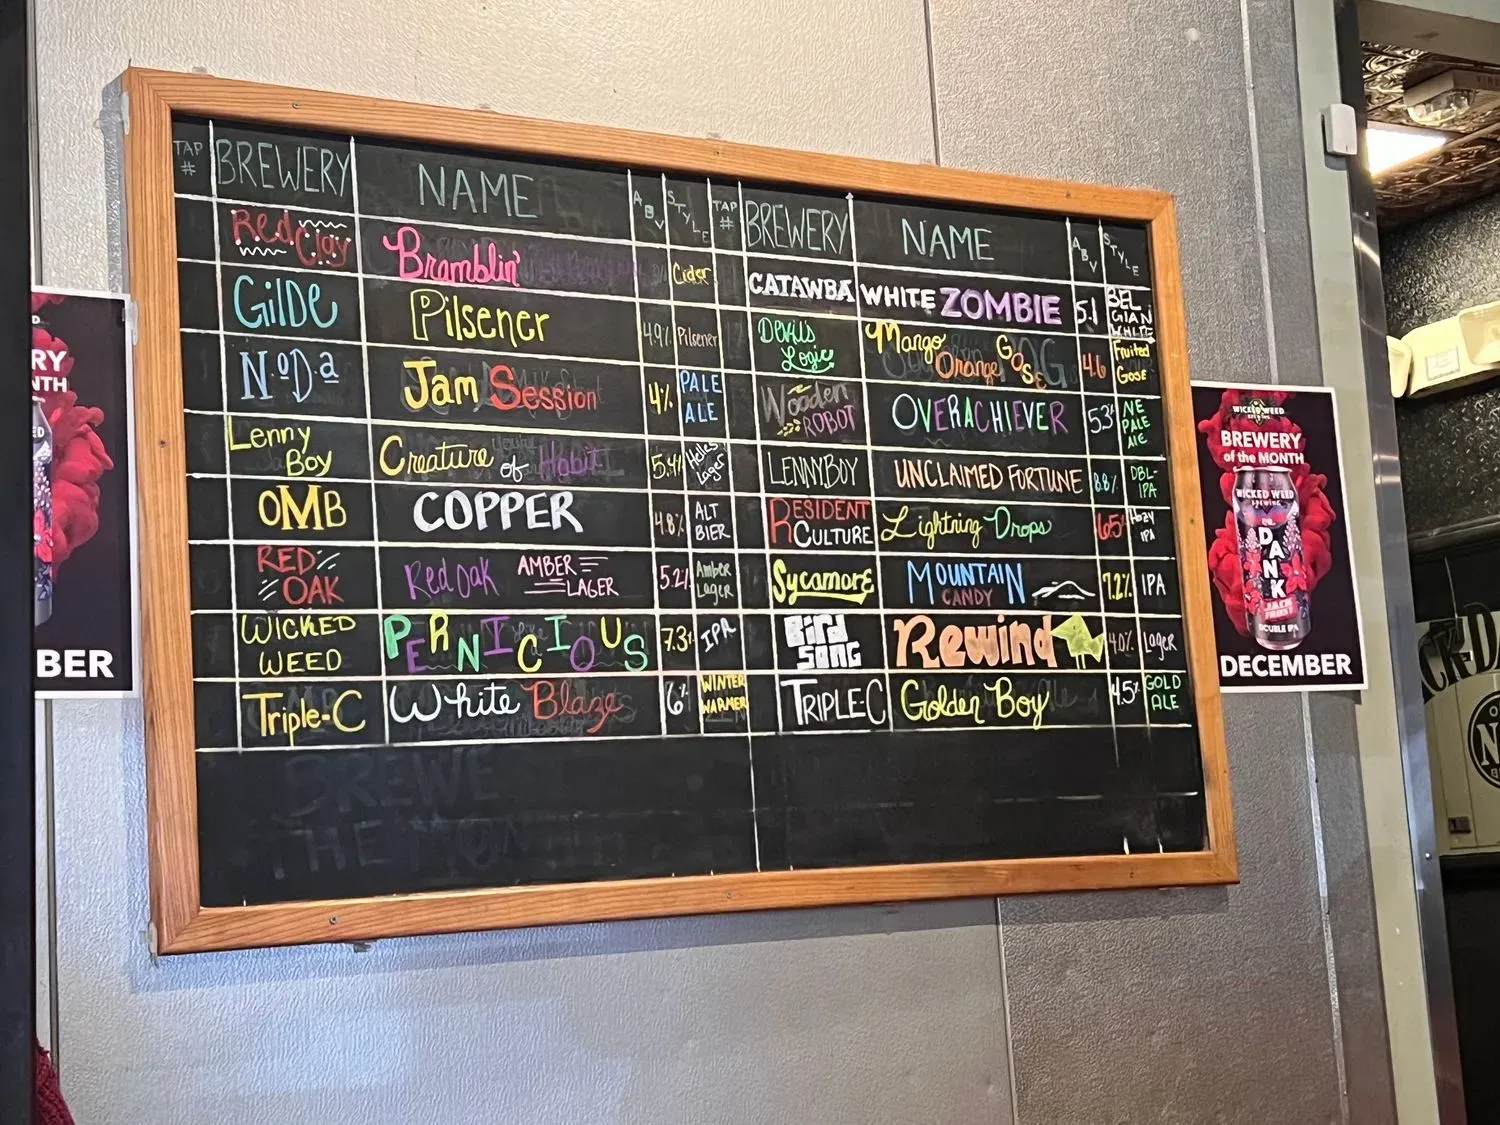 TAP # BREWERY NAME ABV STYLE
Red Clay Bramblin' Cider
GILDE Pilsener 4.9% Pilsener
NoDa Jam Session 4% PALE ALE
Lenny Boy Creature of Habit 5.4% Helles Lager
OMB COPPER 4.8% ALT BIER
RED OAK Red Oak AMBER LAGER 5.2% Amber Lager
WICKED WEED PERNICIOUS 7.3% IPA
Triple-C White Blaze 6% WINTER WARMER
TAP # BREWERY NAME ABV STYLE
CATAWBA WHITE ZOMBIE 5.1 BELGIAN WHITE
Devils Logic Mango Orange GOSE 4.6 Fruited Gose
Wooden ROBOT OVERACHIEVER 5.3% NE PALE ALE
LENNYBOY UNCLAIMED FORTUNE 8.8% DBL-IPA
RESIDENT CULTURE Lightning Drops 6.5% Hazy IPA
Sycamore MOUNTAIN CANDY 7.2% IPA
Bird SONG Rewind 4.0% Lager
TRIPLE-C Golden Boy 4.5% GOLD ALE
RY
NTH
BER
WICKED WEED
BREWING
BREWERY
of the MONTH
WICKED WEED
BREWING
DR.
DANK
JACK FROST
DOUBLE IPA
DECEMBER